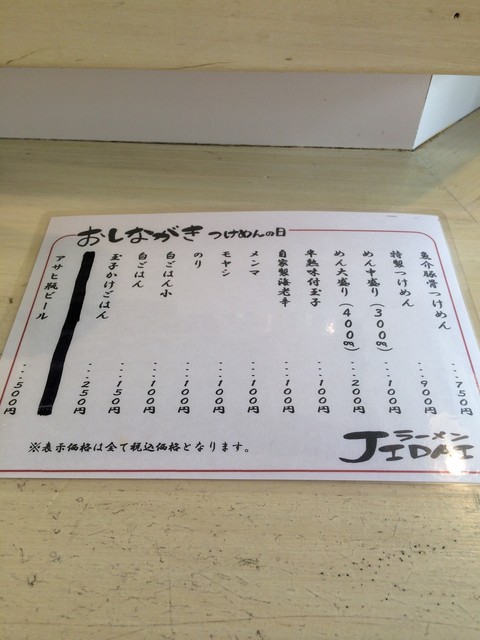 おしながき つけめんの日
魚介豚骨つけめん …750円
特製つけめん …900円
めん中盛り(300g) …100円
めん大盛り(400g) …200円
半熟味付玉子 …100円
自家製海老辛 …100円
メンマ …100円
モヤシ …100円
のり …100円
白ごはん小 …100円
白ごはん …150円
玉子かけごはん …250円
アサヒ瓶ビール …500円
※表示価格は全て税込価格となります。
ラーメン
JIDAI